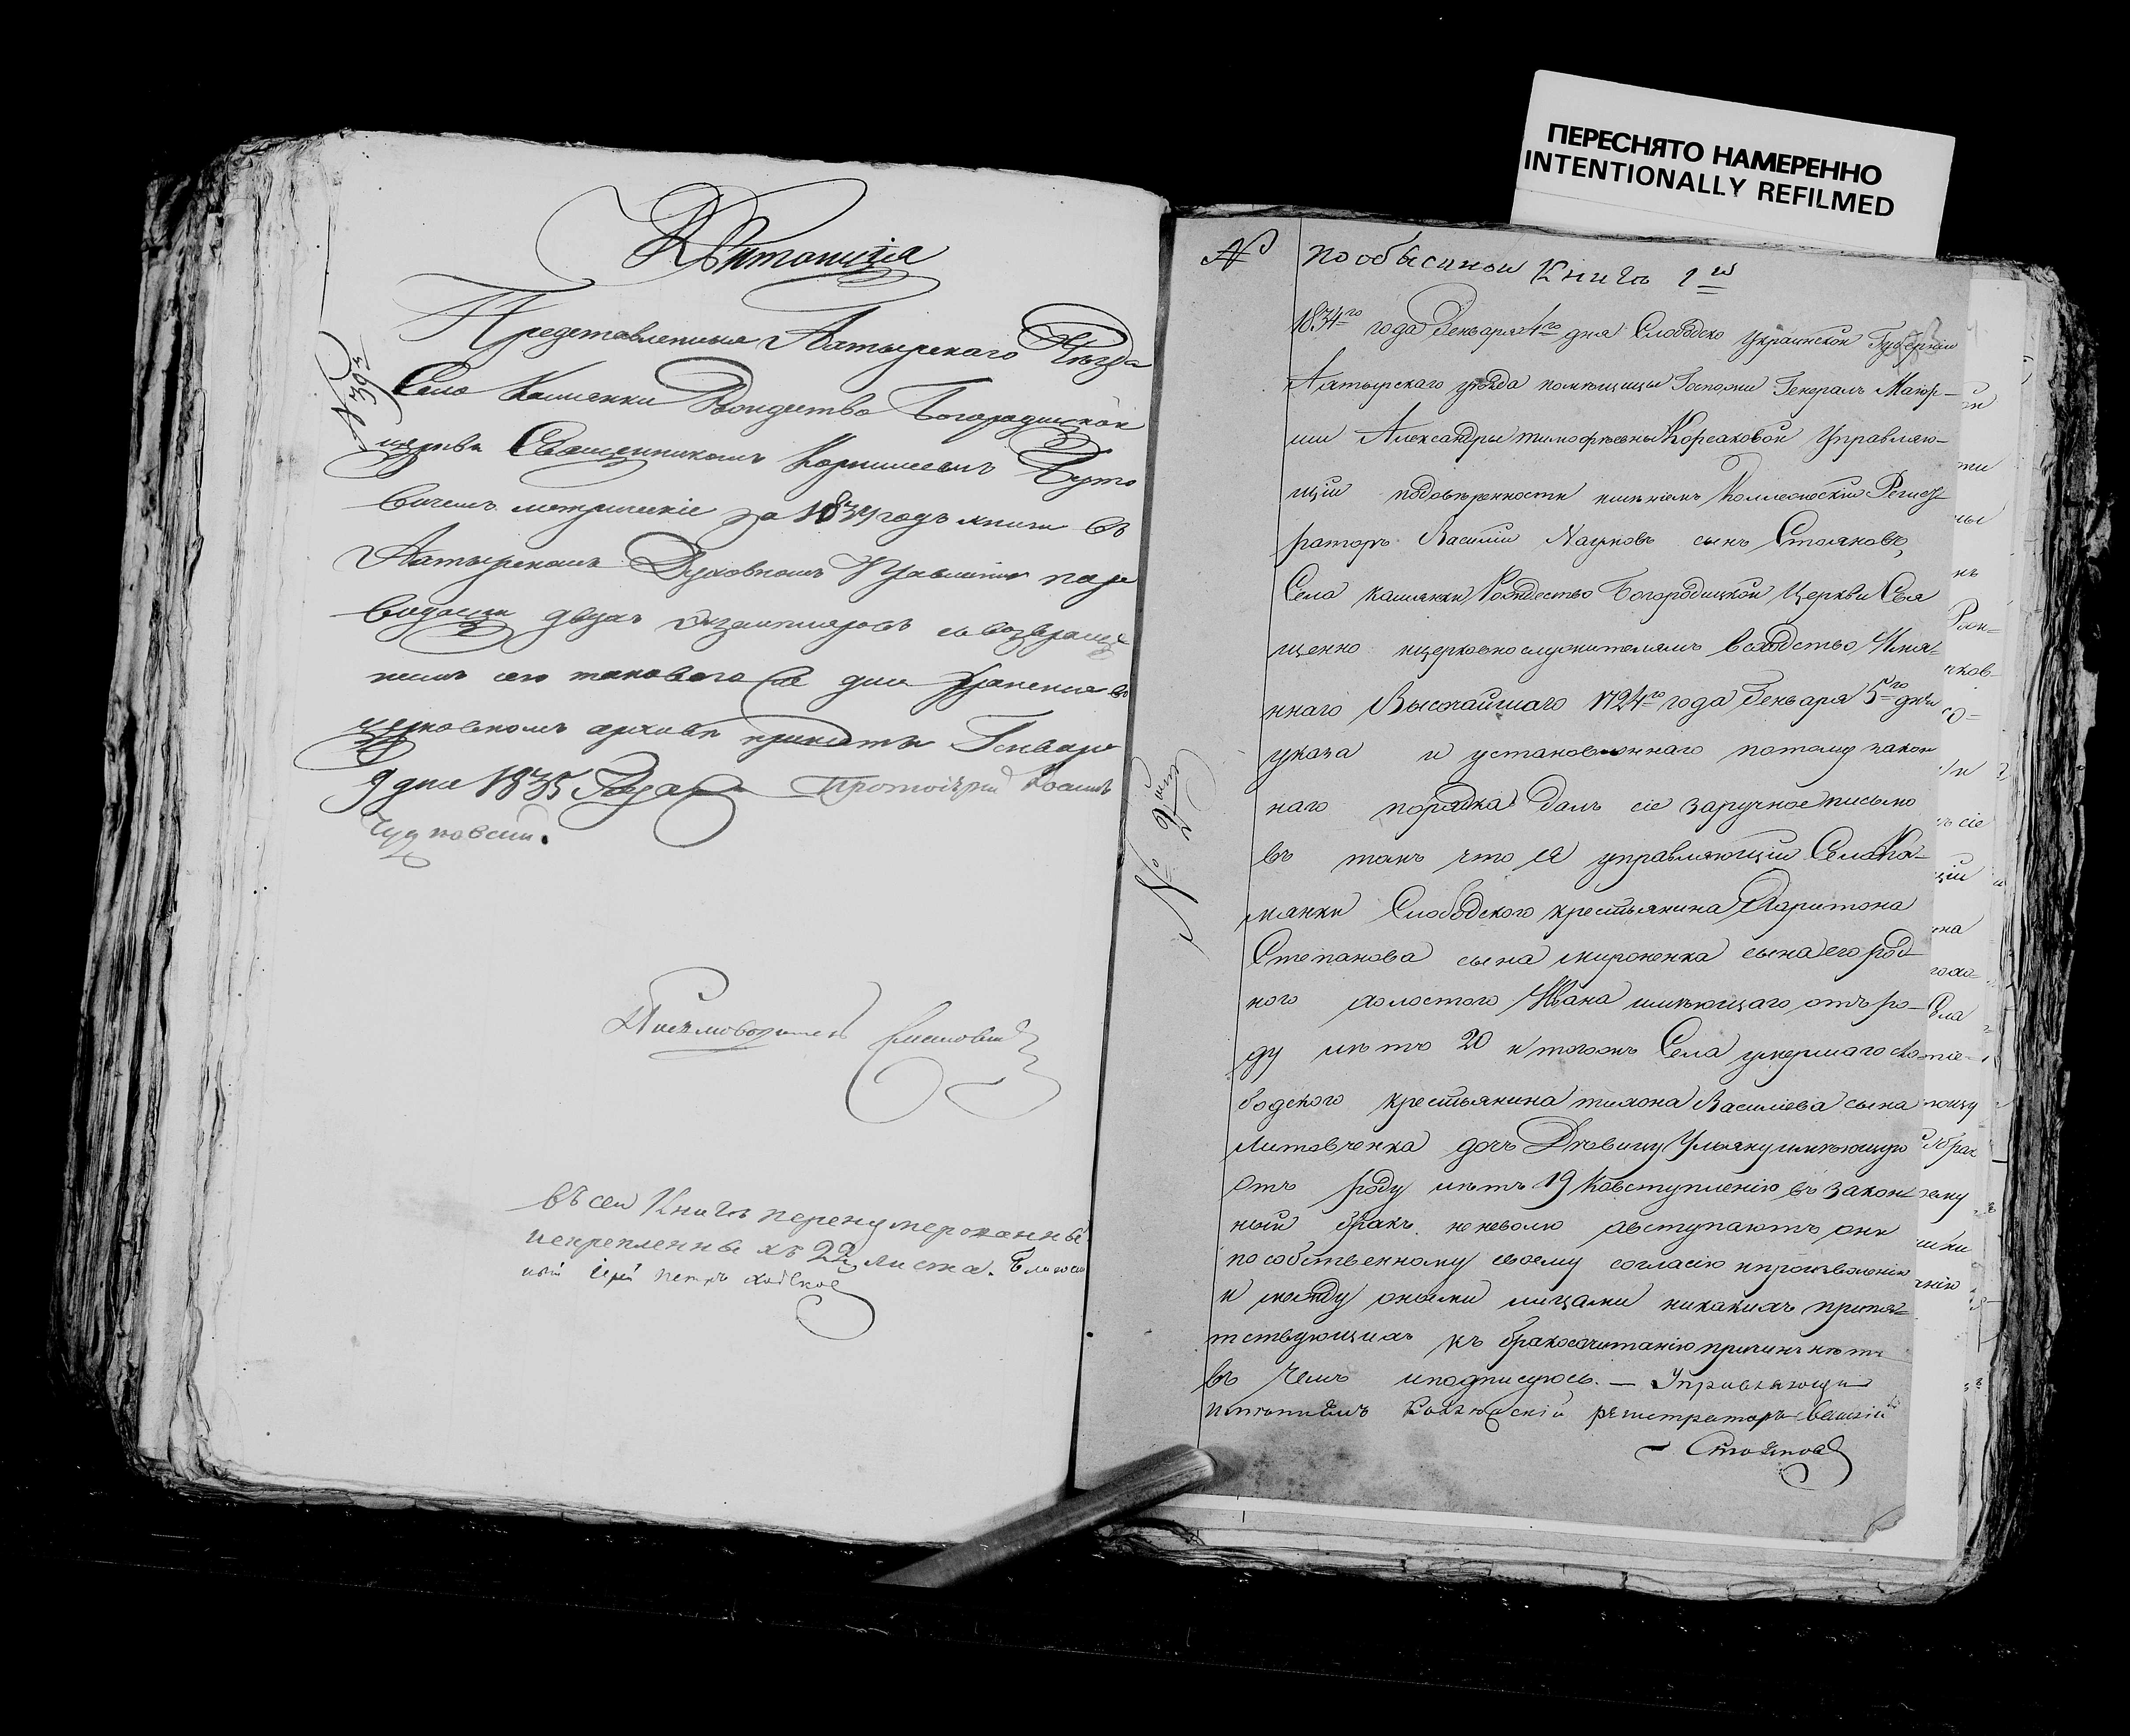 Квитанция
№ 393
Представленныя Ахтырскаго Уезда
Села Каменки Рождество Богородицкой
церкви Священникомъ Корнилиемъ Буто
вичемъ метрическіе за 1834 годъ книги въ
Ахтырскомъ Духовномъ Правленіи
двухъ экземпляровъ съ возвраще
ніемъ сего таковаго для храненія въ
церковномъ архивѣ приняты Генваря
9 дня 1835 Года Протоіерей
Чудновскій.
Письмоводитель
Въ сей Книгѣ перенумерованные
искрепленные хъ 22 листа. Благочи
ный Іерей Петръ
ПЕРЕСНЯТО НАМЕРЕННО
INTENTIONALLY REFILMED
№ пообыскной Книгѣ 1й
1834го года Генваря 4го дня Слободско Украинской Губерніи
Ахтырскаго уѣзда помѣщицы Госпожи Генералъ Маіор-
ши Александры тимофѣевны Корсаковой Управляю-
щій подовѣренности имѣніемъ Коллежскій Регист-
раторъ Василій Наумовъ сынъ Стояновъ,
Села каменки Рождество Богородицкой Церкви Свя
щенно ицерковнослужителямъ Всходство Имян-
ннаго Высочайшаго 1724го года Генваря 5го дня
указа и установленнаго потому закон
наго порядка далъ сіе заручное письмо
въ томъ что я управляющій Села Ка-
менки Слободского крестьянина Харитона
Степанова сына мироненка сына его род
ного холостого Ивана имѣющаго отъ ро-
ду лѣтъ 20 и тогожъ Села умершаго сло
бодского крестьянина тихона Василіева сына
литовченка дочь Дѣвицу Ульяну имѣющую
Отъ роду лѣтъ 19 Ковступленію въ закон
ный бракъ неневолю авступаютъ они
пособственному своему согласію ипроизволенію
и между оными лицами никакихъ препят-
тствующихъ къ бракосочитанію причинъ нѣтъ
въ чемъ иподписуюсь. — Управляющи
имѣніемъ Коллежскій регистраторъ Василій
Стояновъ